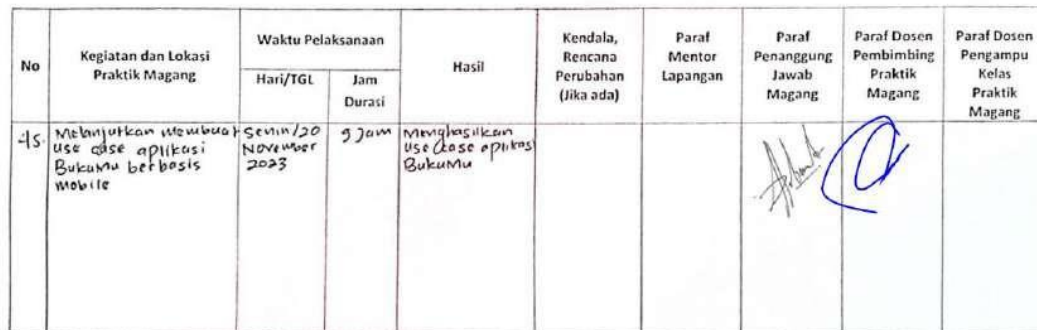 No
Kegiatan dan Lokasi
Praktik Magang
Waktu Pelaksanaan
Hari/TGL
Jam
Durasi
Hasil
Kendala,
Rencana
Perubahan
(Jika ada)
Paraf
Mentor
Lapangan
Paraf
Penanggung
Jawab
Magang
Paraf Dosen
Pembimbing
Praktik
Magang
Paraf Dosen
Pengampu
Kelas
Praktik
Magang
Melanjutkan membuat
use case aplikasi
BukuMu berbasis
mobile
Senin/20
November
2023
9 Jam
Menghasilkan
use case aplikasi
BukuMu